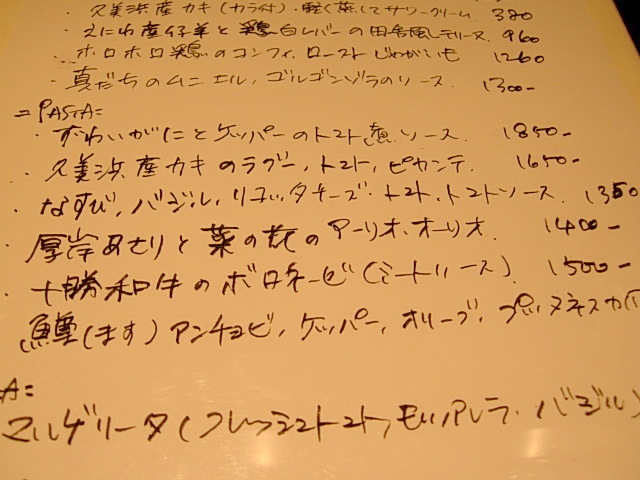 ・久美浜産カキ(カラ付)・軽く蒸してサワークリーム. 380
・えにわ産仔羊と鶏白レバーの田舎風テリーヌ. 960
・ホロホロ鶏のコンフィ. ローストじゃがいも 1260
・真だちのムニエル. ゴルゴンゾラのソース. 1300-
=PASTA=
・ずわいがにとケッパーのトマト煮ソース. 1850-
・久美浜産カキのラグー, トマト, ピカンテ. 1650-
・なすび, バジル, リコッタチーズ, トマト, トマトソース. 1350
・厚岸あさりと菜の花のアーリオ.オーリオ. 1400-
・十勝和牛のボロネーゼ(ミートソース). 1500-
鱒(ます)アンチョビ, ケッパー, オリーブ, プッタネスカ
A=
マルゲリータ(フレッシュトマト, モッツァレラ. バジル)